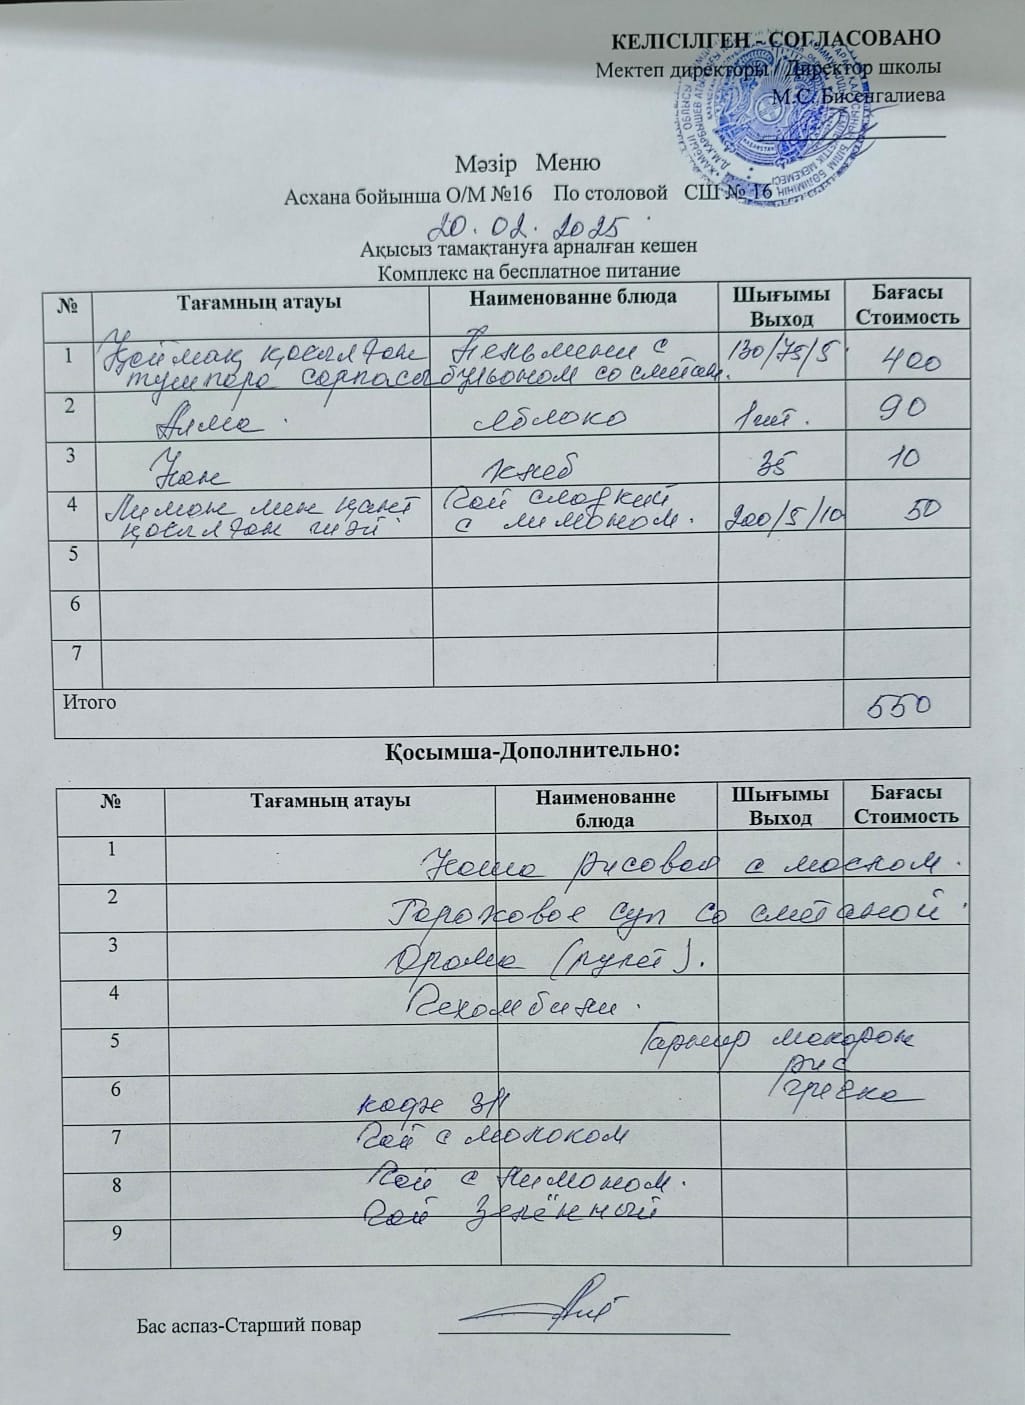 КЕЛІСІЛГЕН - СОГЛАСОВАНО
Мектеп директоры / Директор школы
М.С. Бисенгалиева
Мәзір Меню
Асхана бойынша О/М №16 По столовой СШ № 16
20.02.2025
Ақысыз тамақтануға арналған кешен
Комплекс на бесплатное питание
№ Тағамның атауы Наименованне блюда Шығымы Выход Бағасы Стоимость
1 Қаймақ қосылған тушпара сорпасы Пельмени с бульоном со сметан. 130/75/5 400
2 Алма Яблоко 1 шт. 90
3 Нан Хлеб 35 10
4 Лимон мен қант қосылған шәй Чай сладкий с лимоном. 200/5/10 50
5
6
7
Итого 550
Қосымша-Дополнительно:
№ Тағамның атауы Наименованне блюда Шығымы Выход Бағасы Стоимость
1 Каша рисовая с маслом.
2 Гороховое суп со сметаной
3 Орама (рулет).
4
5 Гарнир макарон
рис
6 кофе 3/1 гречка
7 Чай с молоком
8 Чай с лимоном.
Чай Зелённый
9
Бас аспаз-Старший повар